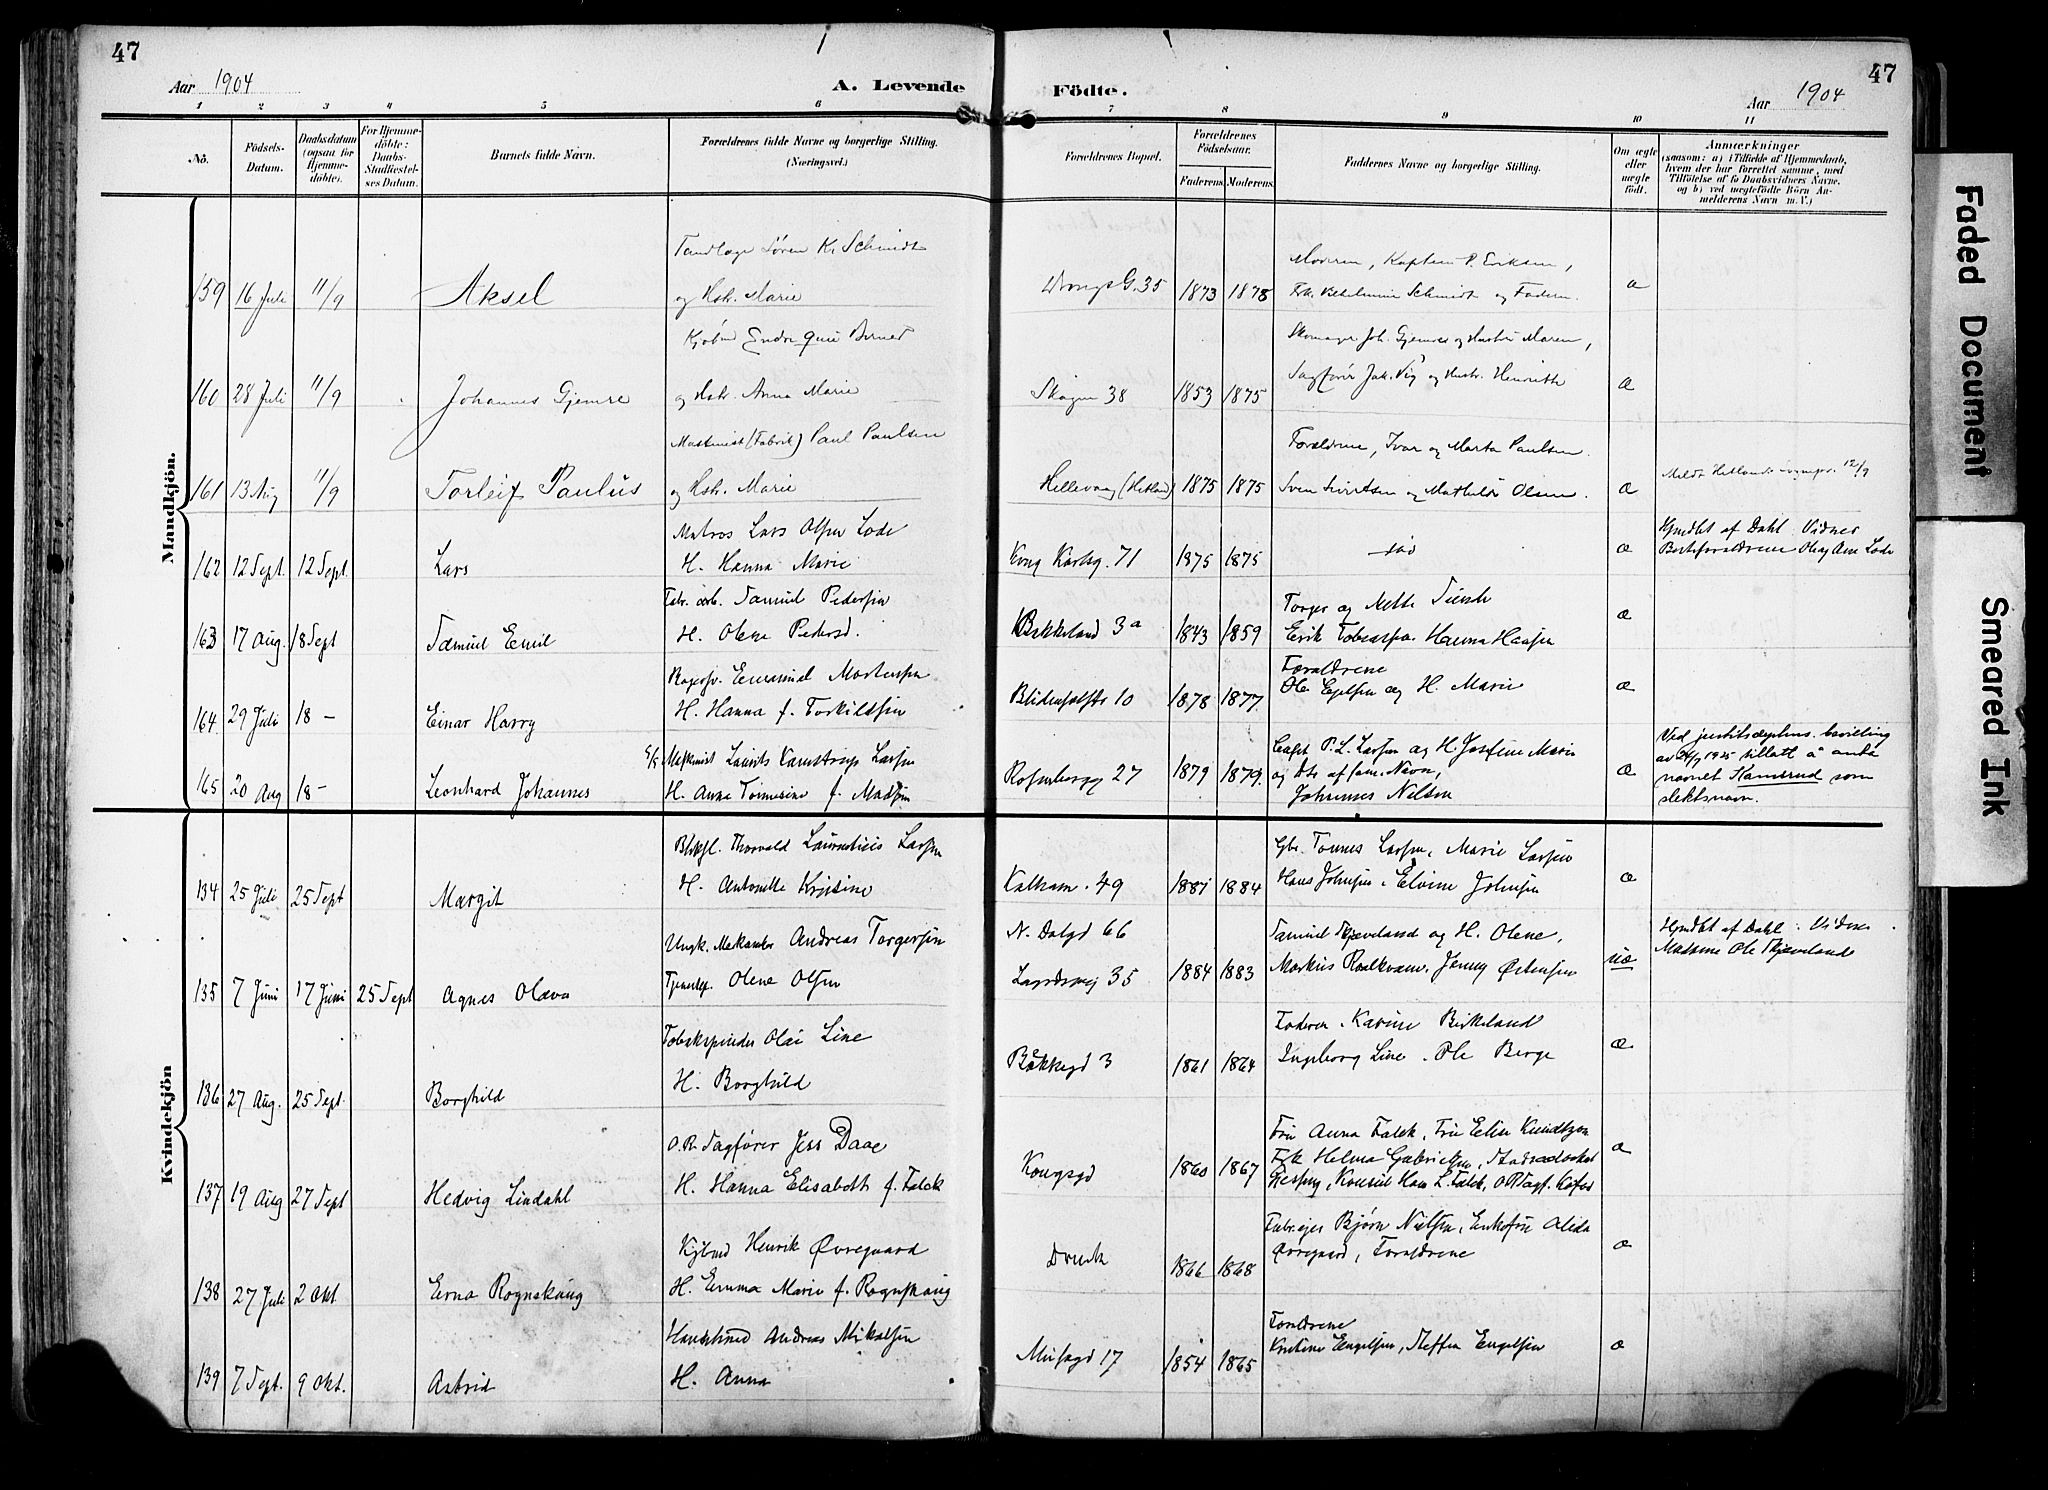 47
47
Aar 1904
A. Levende
Födte.
Aar 1904
1 2 3 4 5 6 7 8 9 10 11
No.
Födsels-Datum.
Daabsdatum (ogsaa for Hjemme-döbte).
For Hjemme-döbte: Daabs-Stadfæstel-ses Datum.
Barnets fulde Navn.
Forældrenes fulde Navne og borgerlige Stilling. (Næringsvei.)
Forældrenes Bopæl.
Forældrenes Födselsaar.
Faderens. Moderens.
Faddernes Navne og borgerlige Stilling.
Om ægte eller uægte födt.
Anmærkninger
(saasom: a) i Tilfælde af Hjemmedaab, hvem der har forrettet samme, med Tilföielse af to Daabsvidners Navne, og b) ved uægtefödte Börn An-melderens Navn m. V.)
Mandkjön.
Tandlæge Sören K. Schmidt
Moderen, Kaptein P. Eriksen,
139 16 Juli 11/9 Aksel og Hstr. Marie
35 1873 1878 Schmidt og Faderen. æ
Kjøbm Endre
Skomager Joh. Gjemre og Hustru Maren,
160 28 Juli 11/9 Johannes Gjemre og Hstr. Anna Marie
Skagen 38 1853 1875 Sagfører Jak. Vig og Hustr. Henriette æ
Maskinist (Fabrik) Paul Paulsen
Forældrene, Ivar og Marta Paulsen.
161 13 Aug 11/9 Torleif Paulus og Hstr. Marie
Hillevaag (Hetland) 1875 1875 Sven Sivertsen og Mathilde Olsen. æ
Meldt Hetlands sognepr. 12/9
Matros Lars Olsen Lode
162 12 Sept. 12 Sept. Lars H. Hanna Marie
Kong Karlsg. 71 1875 1875 død æ
Hjmdbt af Dahl. Vidner
Besteforældrene Ole og Ane Lode
Fabr. arb. Samuel Pedersen
163 17 Aug. 18 Sept Samuel Emil H. Olene Pedersd.
Bekkeland 3a 1843 1859 Torger og Mette
Erik Hanna Hansen æ
Emanuel Mortensen
164 29 Juli 18 - Einar Harry H. Hanna f. Torkildsen
Blidensolstr 10 1878 1877 Forældrene
Ole Egelsen og H. Marie æ
Maskinist Laurits Kamstrup Larsen
165 20 Aug 18 - Leonhard Johannes H. Anna Tomine f. Madsen
Rosenbergg 27 1879 1879 Capt P. L. Larsen og H. Josefine Marie
og Dtr af sam. Navn,
Johannes Nilsen æ
Ved justitsdeptms. bevilling
av 24/7 1925 tillatt å anta
navnet Kamsrud som
slektsnavn.
Kvindekjön
Blikksl. Thorvald Laurentius Larsen
134 25 Juli 25 Sept Margit H. Antonette Kristine
Kalham. 49 1881 1884 Gbr. Tønnes Larsen, Marie Larsen
Hans Johnsen, Elvine Johnsen æ
Ungk. Andreas Torgersen
135 7 Juni 17 Juni 25 Sept Agnes Olava Tjenestep. Olene Olsen
N. Dalgd 66
Lagårdsvej 35 1884 1883 Samuel Skjæveland og H. Olene,
Markus Roalkvam, Jenny Østensen uæ
Hjmdbt af Dahl. Vidner
Madame Ole Skjæveland
Tobakspinder Olai Line
136 27 Aug. 25 Sept. Borghild H. Borghild
Bakkegd 3 1861 1864 Faderen, Karine Birkeland
Ingeborg Line, Ole Berge æ
O.R. Sagfører Jess Daae
137 19 Aug 27 Sept Hedvig Lindahl H. Hanna Elisabeth f. Falck
Kongsgd 1860 1867 Fru Anna Falck, Fru Elise Knudtzon
Frk Helma Gabrielsen, Stadsadvokat
Konsul Hans L. Falck, O.R. Sagf. æ
Kjøbmd Henrik Øvregaard
138 27 Juli 2 Okt. Erna Rognskaug H. Emma Marie f. Rognskaug
1866 1868 Fabr.ejer Bjørn Nielsen, Enkefru Alida
Øvregaard, Forældrene æ
Handelsmd Andreas Mikalsen
139 7 Sept. 9 Okt. Astrid H. Anna
Musegd 17 1854 1865 Forældrene
Kristine Engelsen, Steffen Engelsen æ
Faded Document
Smeared Ink